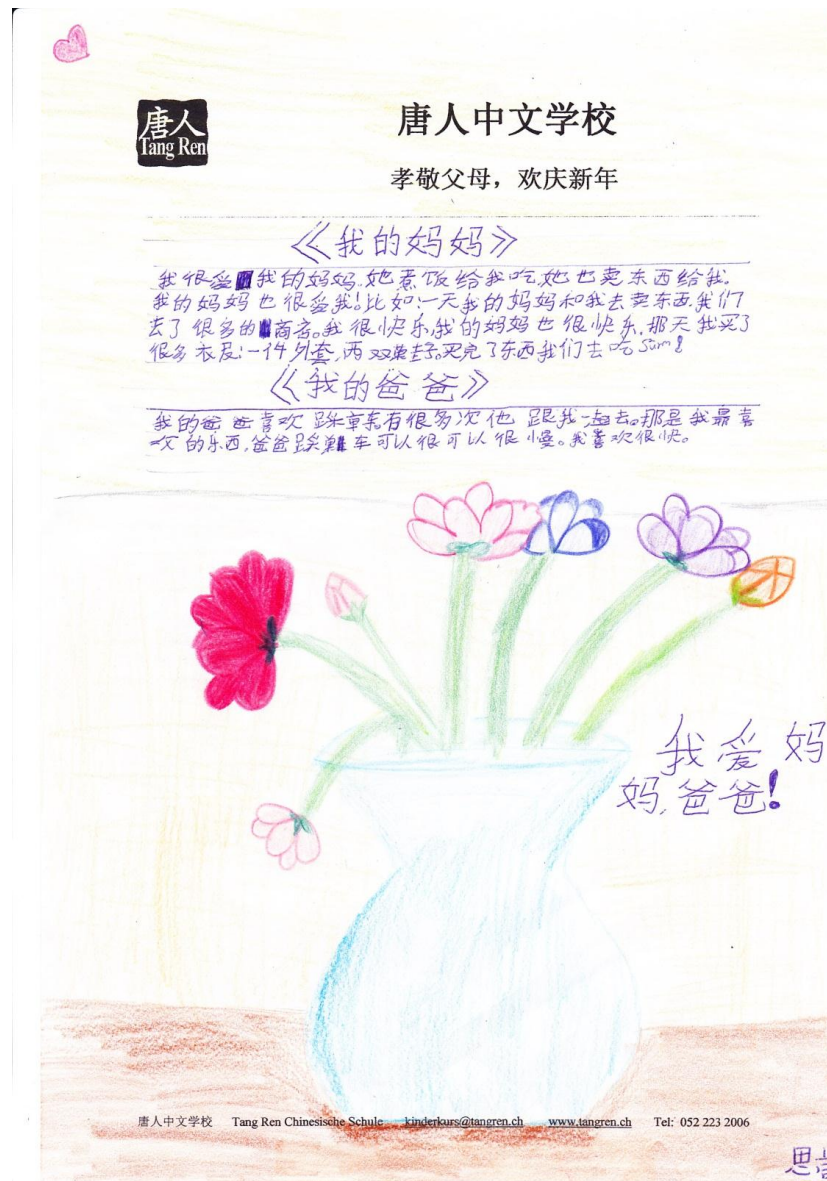 唐人
Tang Ren
唐人中文学校
孝敬父母，欢庆新年
《我的妈妈》
我很爱我的妈妈.她煮饭给我吃.她也卖东西给我.
我的妈妈也很爱我!比如:一天我的妈妈和我去卖东西.我们
去了很多的商店。我很快乐,我的妈妈也很快乐.那天我买了
很多衣服:一件外套,两双.买完了东西我们去吃
《我的爸爸》
我的爸爸喜欢车有很多次他跟我一起去。那是我最喜
欢的东西,爸爸车可以很可以很慢。我喜欢很快。
我爱妈
妈,爸爸!
唐人中文学校 Tang Ren Chinesische Schule kinderkurs@tangren.ch www.tangren.ch Tel: 052 223 2006
思